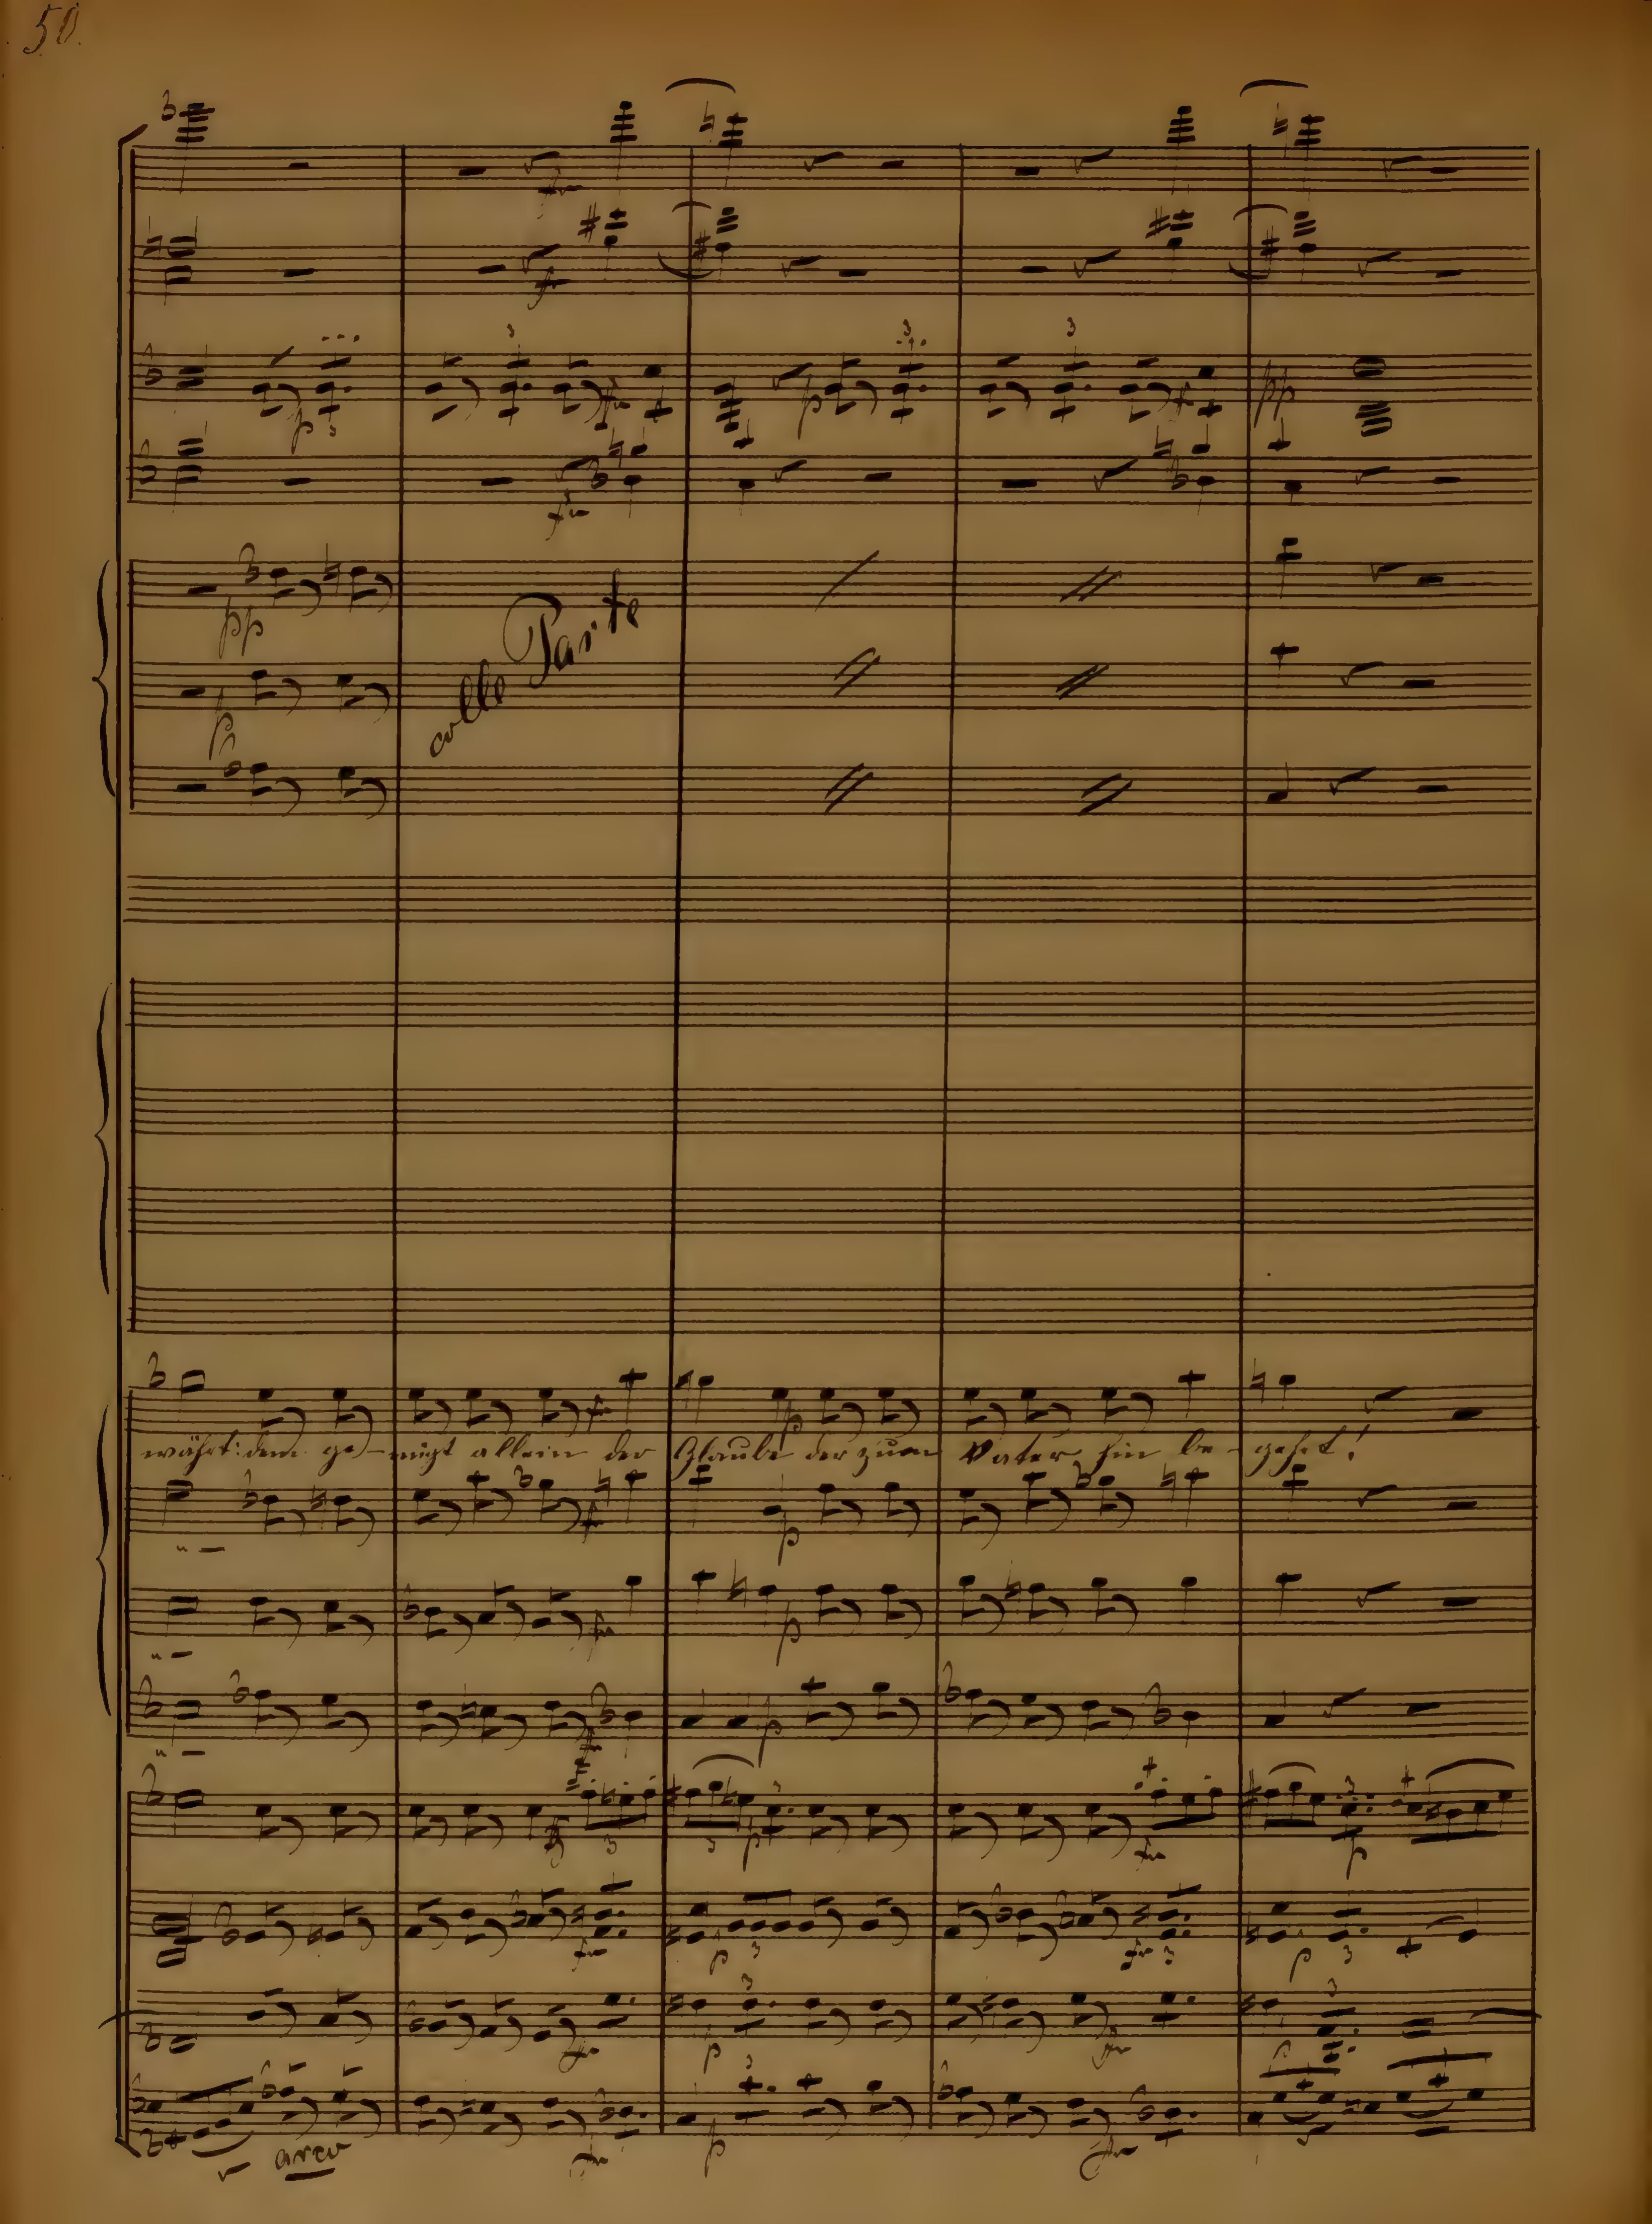 50.
pp
p
colle Parte
währt: dem ge- nügt allein der Glaube der zum Vater hin be- gehrt!
arco